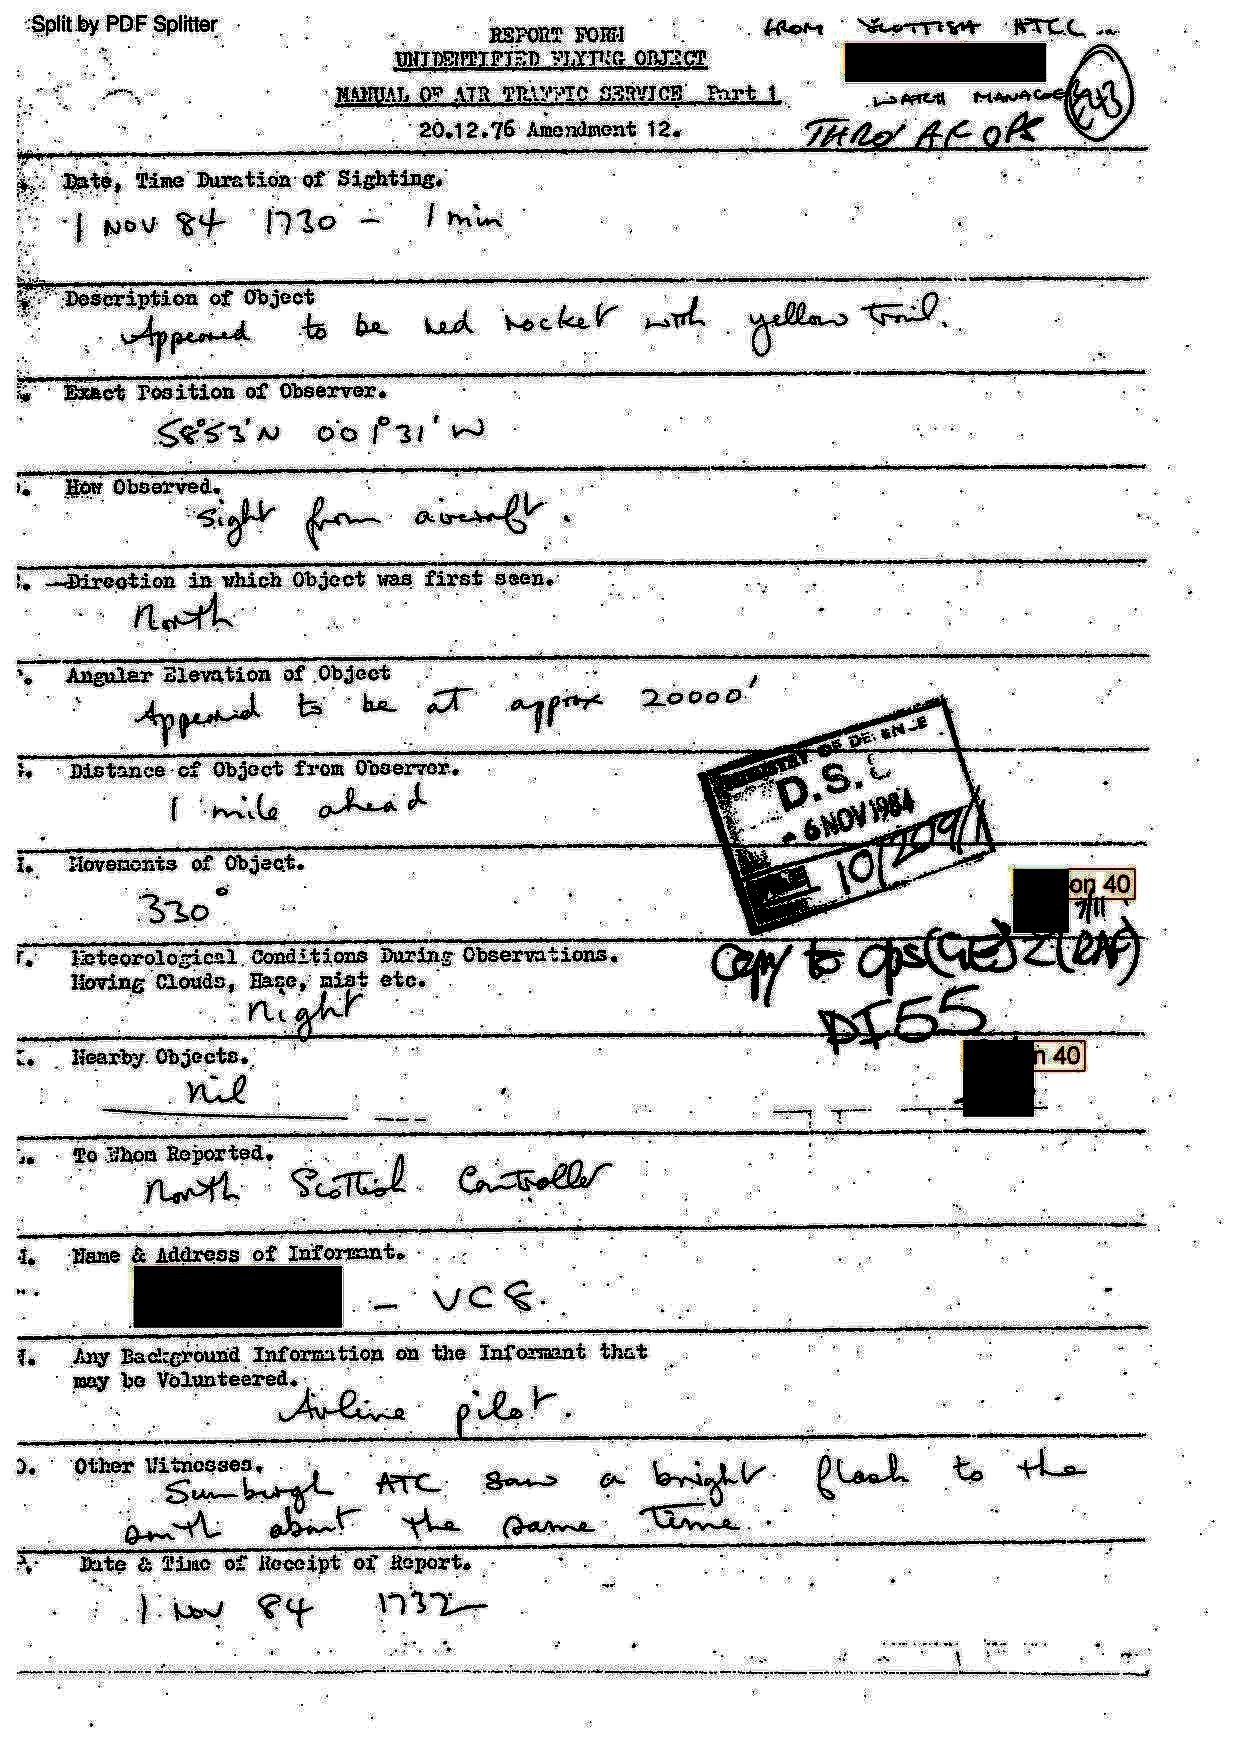 Split by PDF Splitter
REPORT FORM
UNIDENTIFIED FLYING OBJECT
MANUAL OF AIR TRAFFIC SERVICE Part 1
20.12.76 Amendment 12.
FROM SCOTTISH ATCC
WATCH MANAGER
E43
THRO' AF OPS
Date, Time Duration of Sighting.
1 NOV 84 1730 - 1 min
Description of Object
Appeared to be red rocket with yellow trail.
Exact Position of Observer.
58°53'N 001°31'W
How Observed.
Sight from aircraft.
Direction in which Object was first seen.
North
Angular Elevation of Object
Appeared to be at approx 20000'
Distance of Object from Observer.
1 mile ahead
MINISTRY OF DEFENCE
D.S.
- 6 NOV 1984
10/209/1
FILE
Movements of Object.
330°
on 40
7/11
Meteorological Conditions During Observations.
Moving Clouds, Haze, mist etc.
Night
Copy to Ops(GE)2(RAF)
DI55
Nearby Objects.
Nil
n 40
To Whom Reported.
North Scottish Controller
Name & Address of Informant.
- VC8.
Any Background Information on the Informant that
may be Volunteered.
Airline pilot.
Other Witnesses.
Sumburgh ATC saw a bright flash to the
south about the same time.
Date & Time of Receipt of Report.
1 Nov 84 1732